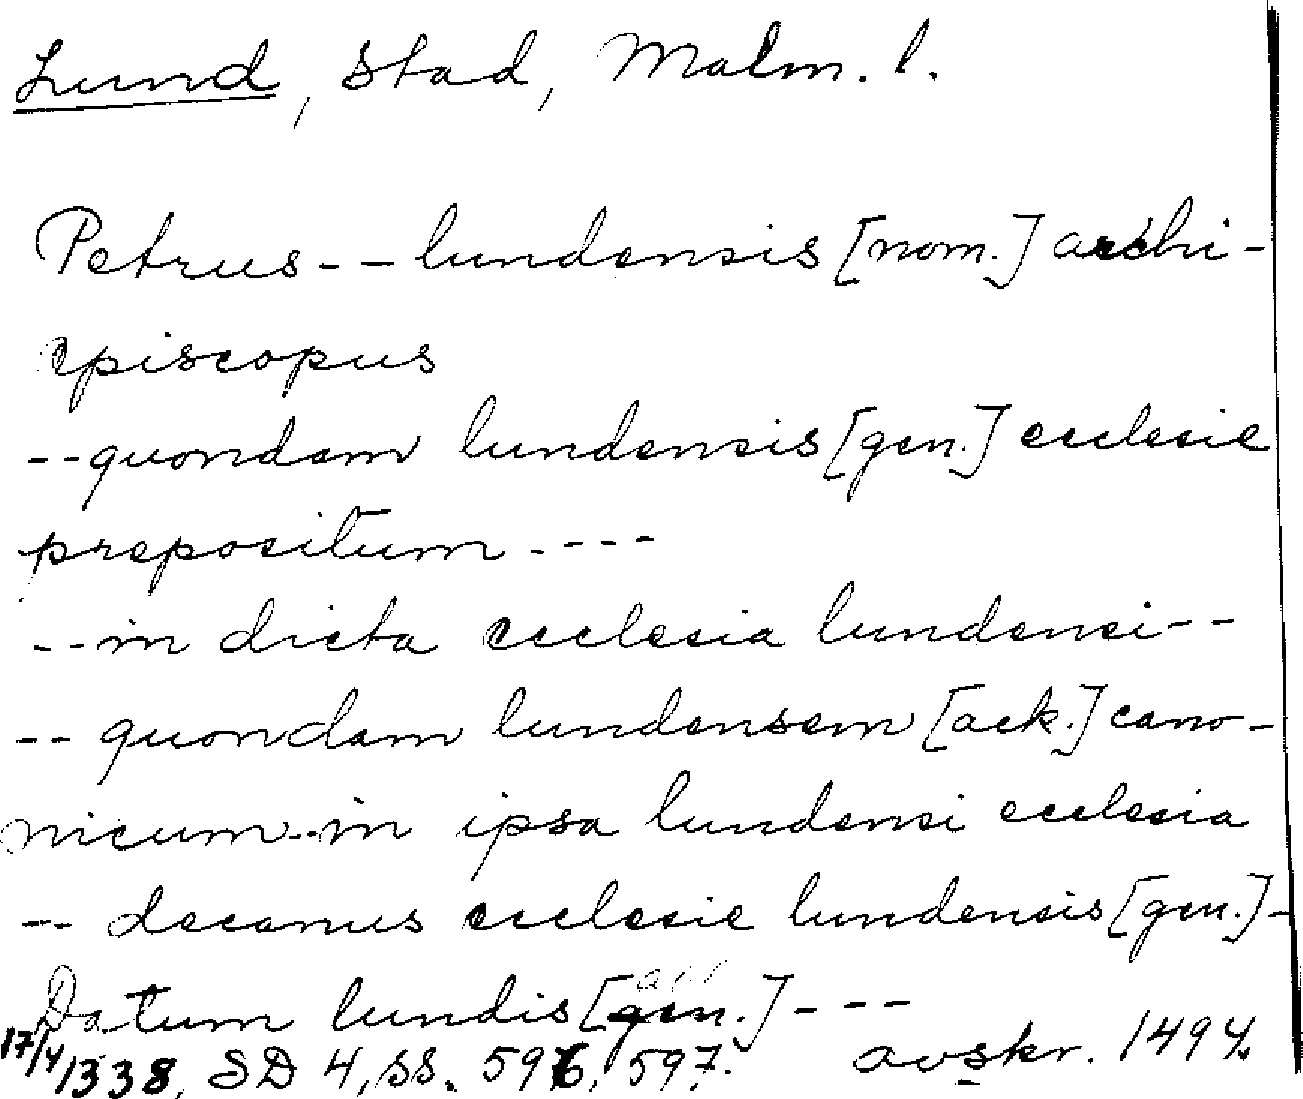 Lund, Stad, Malm. l.
Petrus -- lundensis [nom.] archi-
episcopus
-- quondam lundensis [gen.] ecclesie
prepositum ----
-- in dicta ecclesia lundensi --
-- quondam lundensem [ack.] cano-
nicum -- in ipsa lundensi ecclesia
-- decanus ecclesie lundensis [gen.] -
Datum lundis [gen.] ---
17/4 1338, SD 4, ss. 596, 597. avskr. 1494.